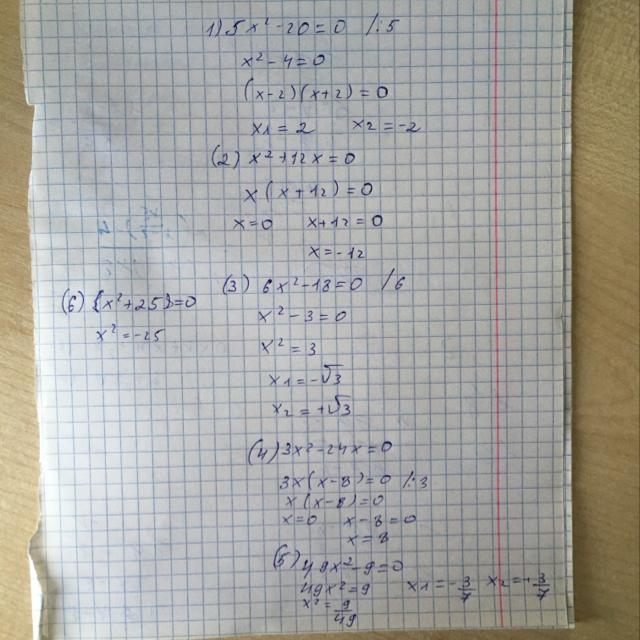 1) 5x² - 20 = 0 /:5
x² - 4 = 0
(x-2)(x+2) = 0
x1 = 2 x2 = -2
(2) x² + 12x = 0
x(x+12) = 0
x=0 x+12=0
x=-12
(3) 6x² - 18 = 0 /6
x² - 3 = 0
x² = 3
x1 = -√3
x2 = +√3
(4) 3x² - 24x = 0
3x(x-8) = 0 /:3
x(x-8) = 0
x=0 x-8=0
x=8
(5) 49x² - 9 = 0
49x² = 9 x1 = -3/7 x2 = +3/7
x² = 9/49
(6) (x²+25)=0
x² = -25